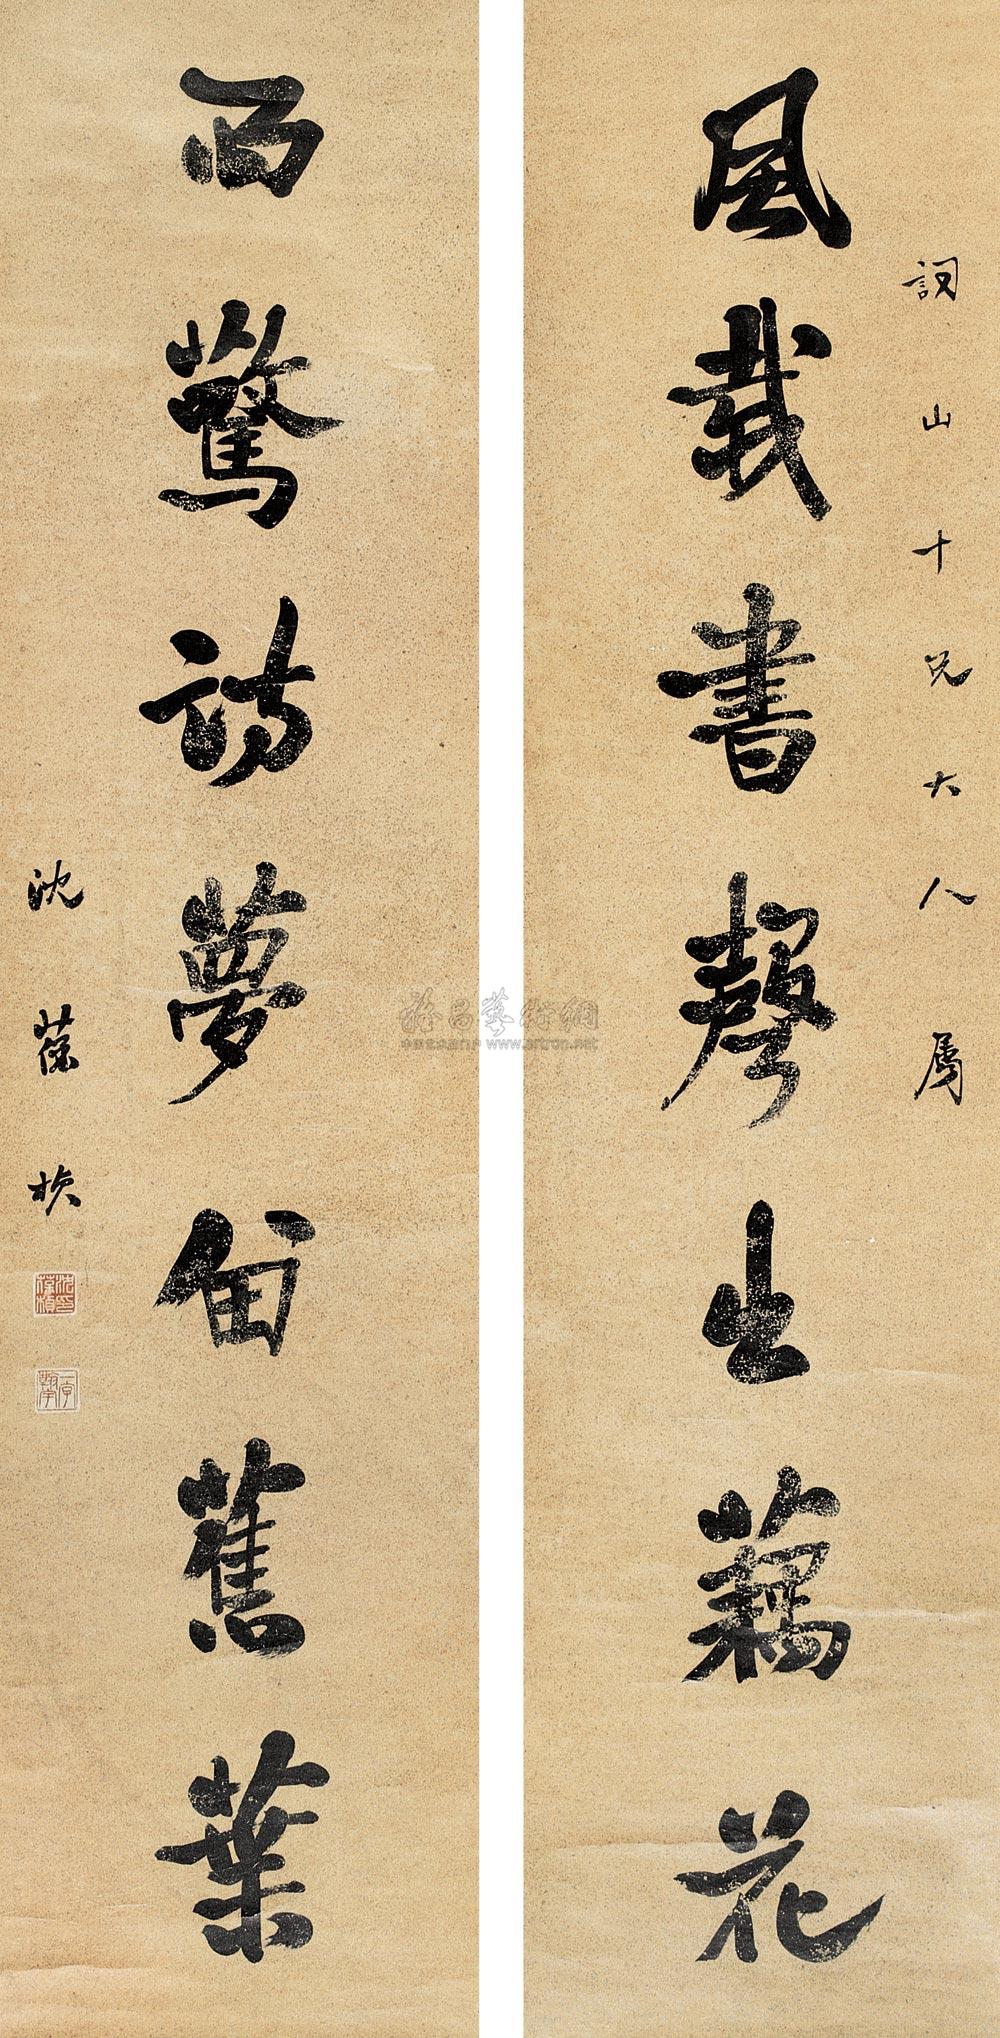 詞山十兄大人屬
風載書聲出藕花
雨驚詩夢留蕉葉
沈葆楨
沈印葆楨
雅昌藝術網
www.artron.net